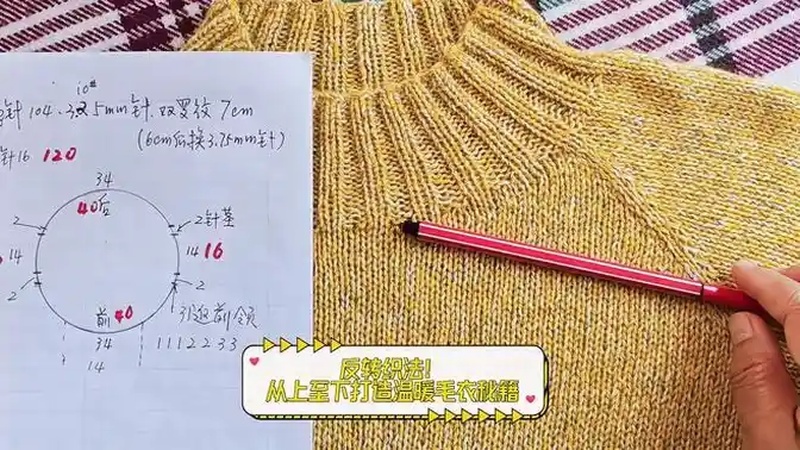 10#
针 104. 3.25mm针. 双罗纹 7cm
(6cm后换3.75mm针)
针16 120
34
40后
2 2针茎
14 14 16
2 2
前40 引返前领
34 1112233
14
反转织法!
从上至下打造温暖毛衣秘籍